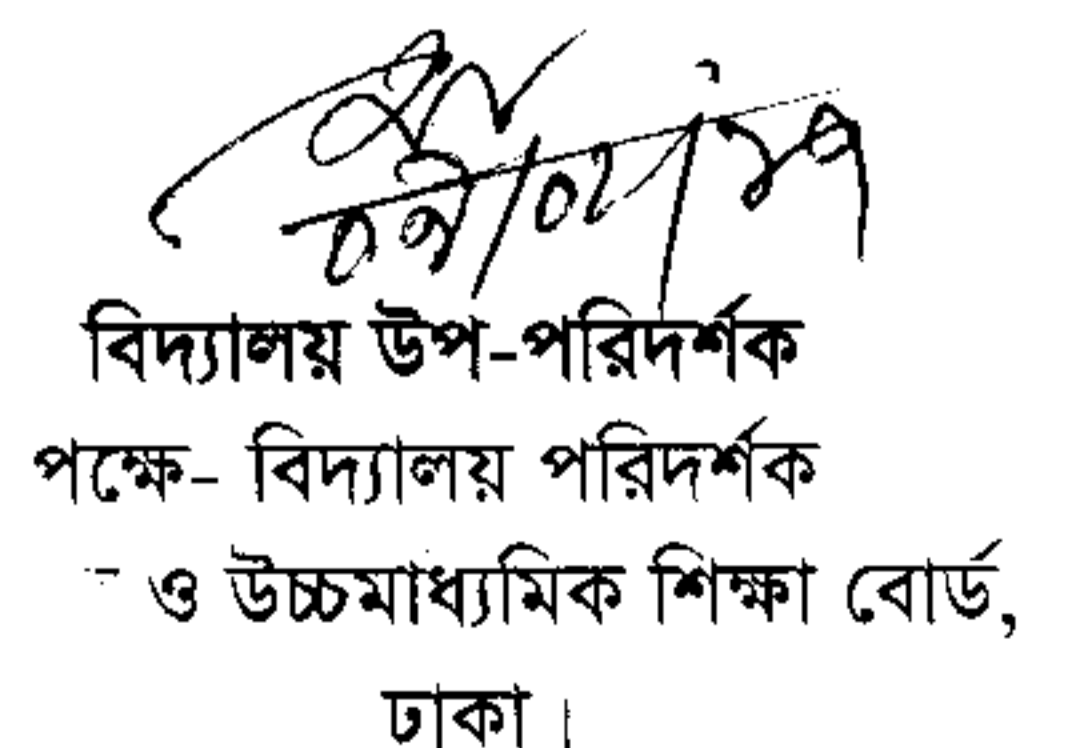 বিদ্যালয় উপ-পরিদর্শক
পক্ষে- বিদ্যালয় পরিদর্শক
ও উচ্চমাধ্যমিক শিক্ষা বোর্ড,
ঢাকা।